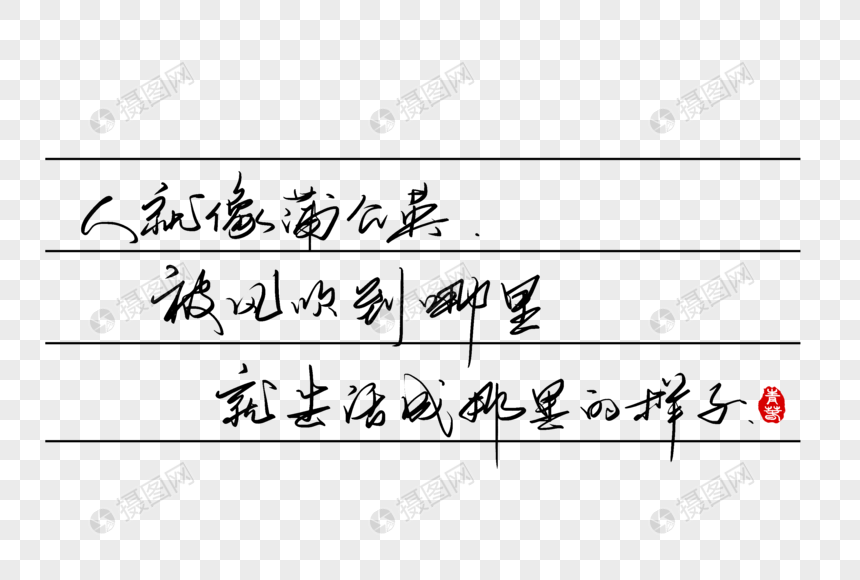 人就像蒲公英.
被风吹到哪里
就生活成那里的样子.
青春
摄图网
摄图网
摄图网
摄图网
摄图网
摄图网
摄图网
摄图网
摄图网